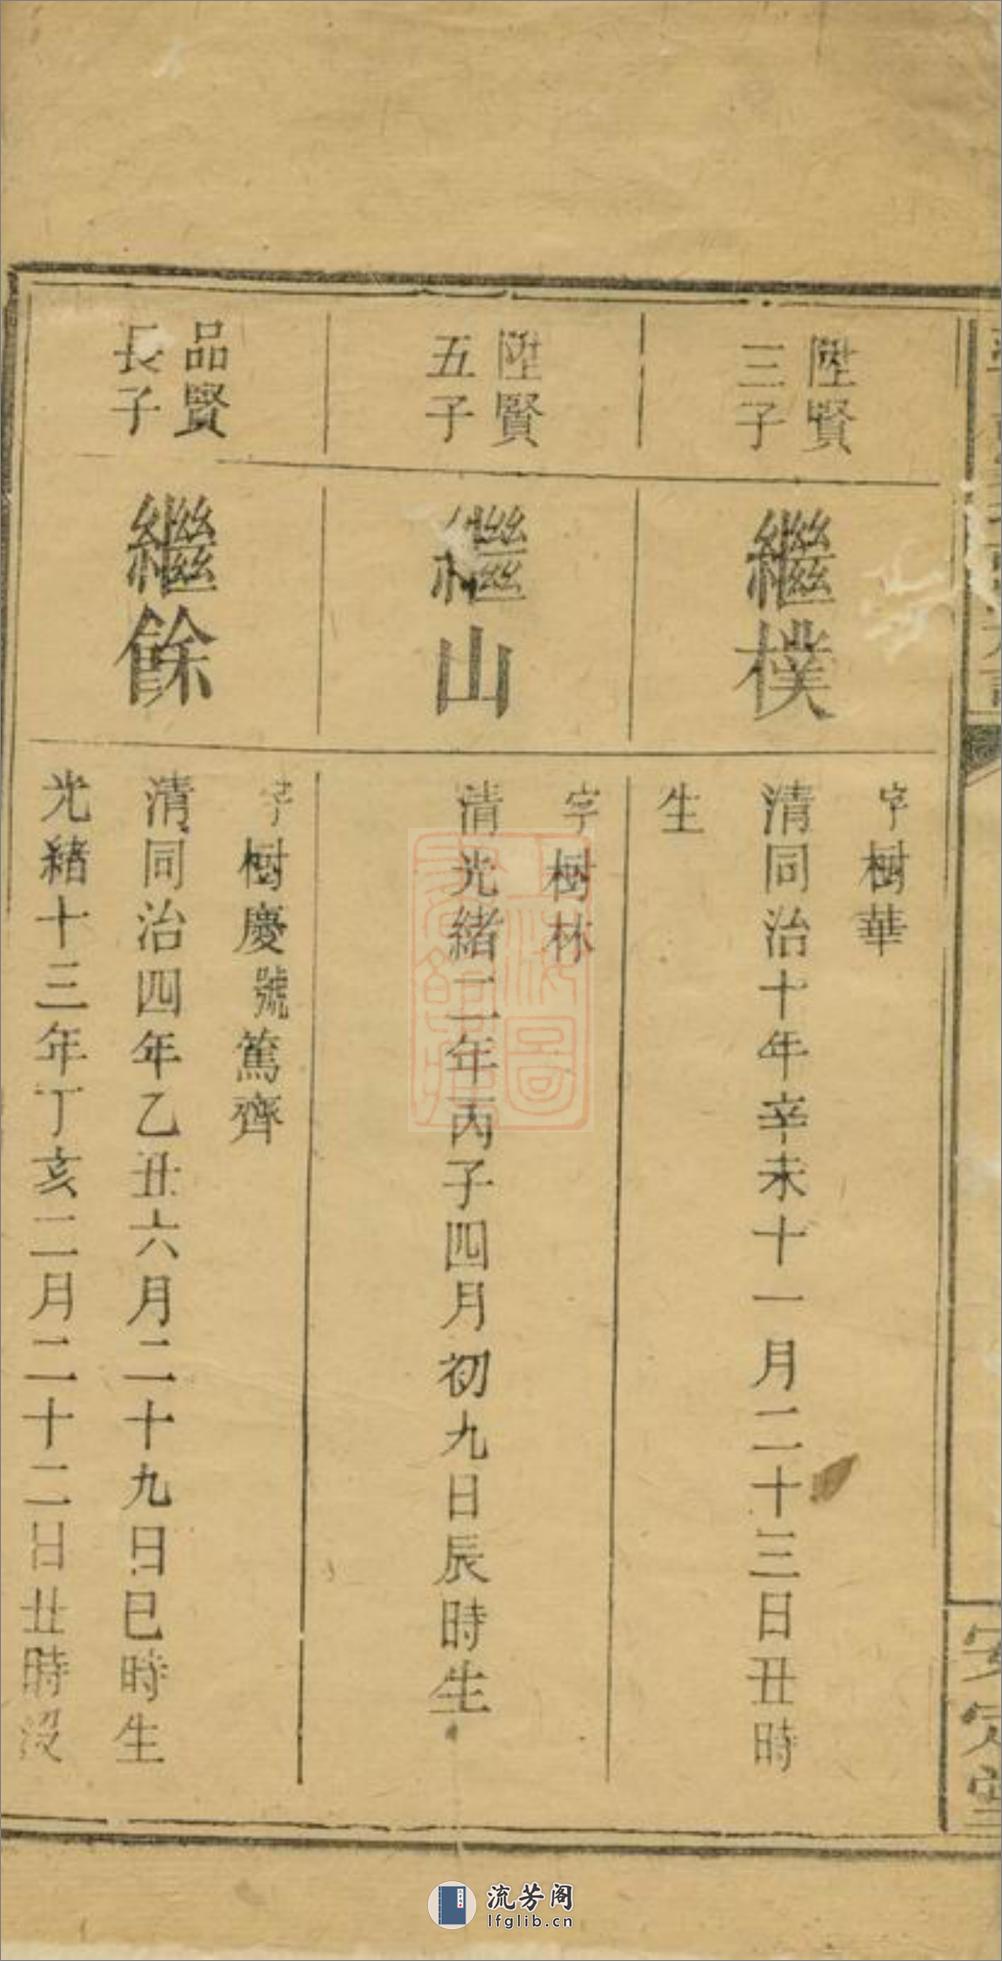 陞賢
三子
繼樸
字樹華
清同治十年辛未十一月二十三日丑時
生
陞賢
五子
繼山
字樹林
清光緒二年丙子四月初九日辰時生
品賢
長子
繼餘
字樹慶號篤齊
清同治四年乙丑六月二十九日巳時生
光緒十三年丁亥二月二十二日丑時沒
安定堂
流芳阁
lfglib.cn